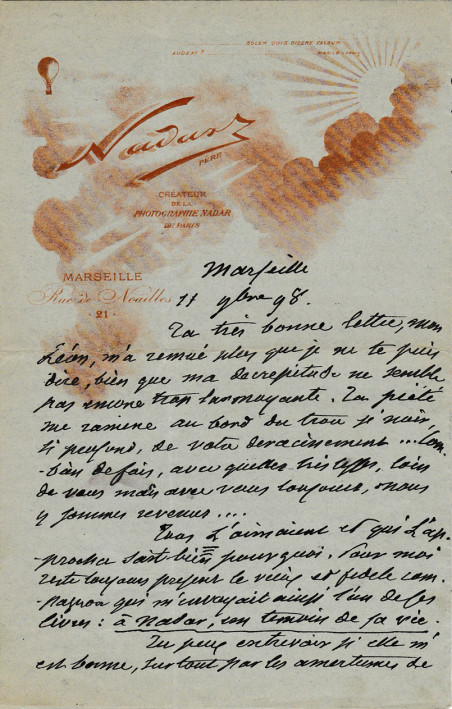 SOLEM QUIS DICERE FALSUM
AUDEAT ?
Nadar
PÈRE
CRÉATEUR
DE LA
PHOTOGRAPHIE NADAR
DE PARIS
MARSEILLE
Rue de Noailles
21
Marseille
17 9bre 98.
Ta très bonne lettre, mon
Léon, m'a remué plus que je ne te puis
dire, bien que ma decrepitude ne semble
pas encore trop larmoyante. Ta piété
me ramène au bord du trou si noir,
si profond, de votre deracinement ... Com-
-bien de fois, avec quelles tristesses, loin
de vous mais avec vous toujours, nous
y sommes revenus ...
Tous L'aimaient et qui L'ap-
-procha sait bien pourquoi. Pour moi
reste toujours présent le vieux et fidele com-
-pagnon qui m'envoyait ainsi l'un de ses
livres : à Nadar, un temoin de sa vie.
Tu peux entrevoir si elle m'
est bonne, surtout par les amertumes de